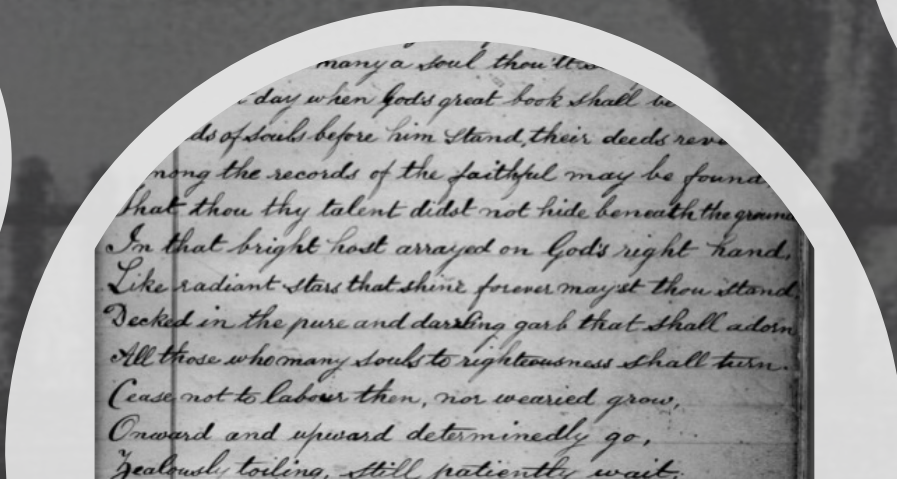 many a soul thou'lt
day when God's great book shall be
of souls before him stand, their deeds
the records of the faithful may be found,
That thou thy talent didst not hide beneath the ground
In that bright host arrayed on God's right hand,
Like radiant stars that shine forever may'st thou stand,
Decked in the pure and dazzling garb that shall adorn
All those who many souls to righteousness shall turn.
Cease not to labour then, nor wearied grow,
Onward and upward determinedly go,
Zealously toiling, still patiently wait,